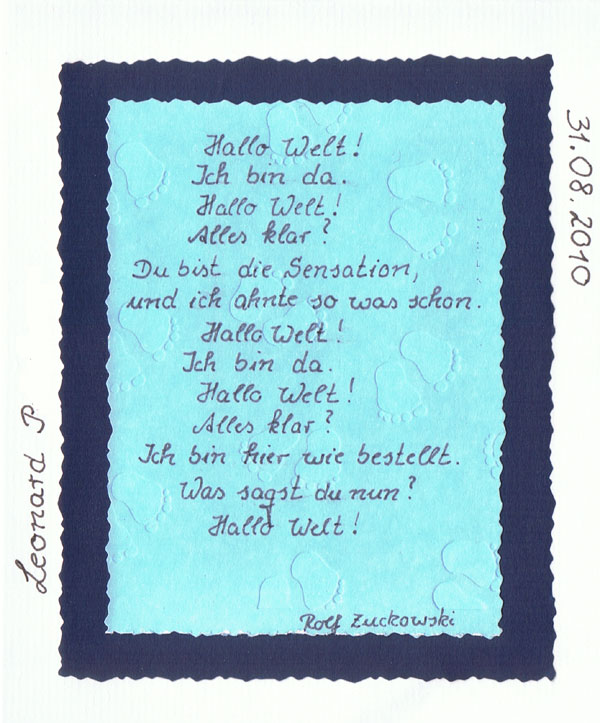 Hallo Welt!
Ich bin da.
Hallo Welt!
Alles klar?
Du bist die Sensation,
und ich ahnte so was schon.
Hallo Welt!
Ich bin da.
Hallo Welt!
Alles klar?
Ich bin hier wie bestellt.
Was sagst du nun?
Hallo Welt!
Rolf Zuckowski
Leonard P
31.08.2010